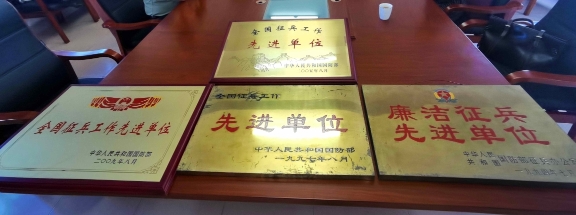 全国征兵工作
先进单位
中华人民共和国国防部
二〇〇五年八月
全国征兵工作先进单位
中华人民共和国国防部
二〇〇九年八月
全国征兵工作
先进单位
中华人民共和国国防部
一九九七年八月
廉洁征兵
先进单位
中华人民
共和国